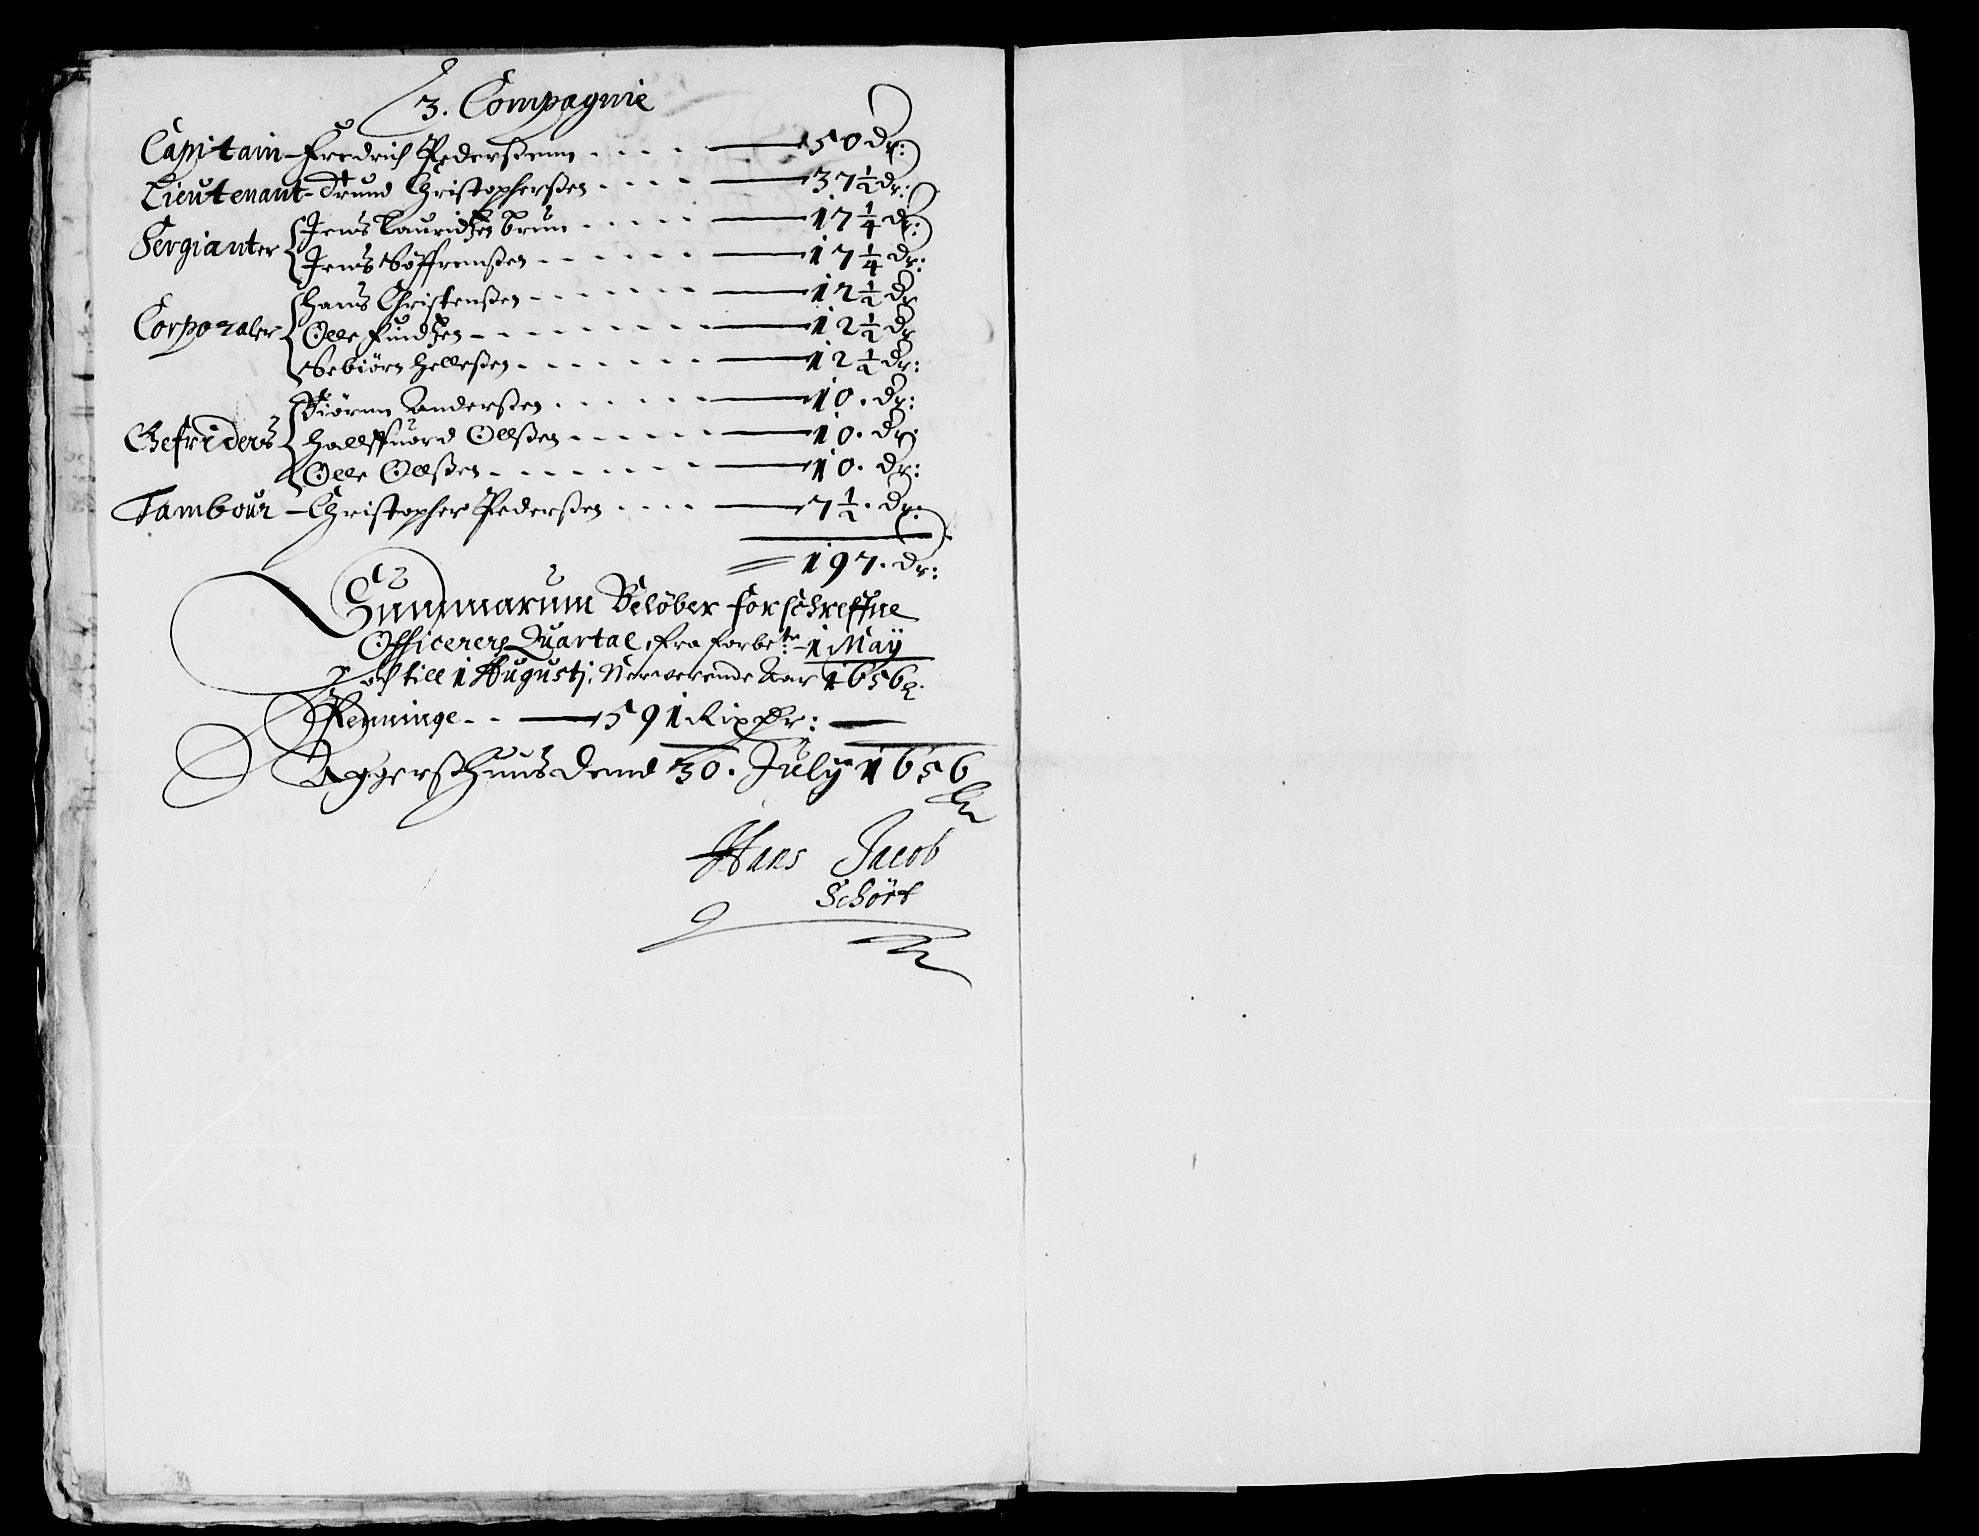 3. Compagnie
Capitain – Fredrich Pederßenn . . . . — 50 dr:
Lieutenant – Trund Christopherßen . . . . — 37 1/2 dr:
Sergianter { Jens Lauridtzen Brun . . . . — 17 1/4 dr:
Jens Søffrenßen . . . . — 17 1/4 dr:
Corporaler { Hans Christenßen . . . . — 12 1/2 dr
Olle Findtzen . . . . — 12 1/2 dr
Sebiørn Helleßen . . . . — 12 1/2 dr:
Gefriders { Biørnn Anderßen . . . . — 10. dr:
Hallffuord Ollßen . . . . — 10. dr:
Olle Ollßen . . . . — 10. dr:
Tambour – Christopher Pederßen . . . . — 7 1/2. dr:
= 197. dr:
Summarum Beløber forschreffne
Officerers Quartal, fra forbe:te 1 May
och till 1 Augustj, Nerwerende Aar 1656
Penninge - - — 591 Rix dr: —
Aggerßhuus dend 30. July 1656
Hans Jacob
Schört